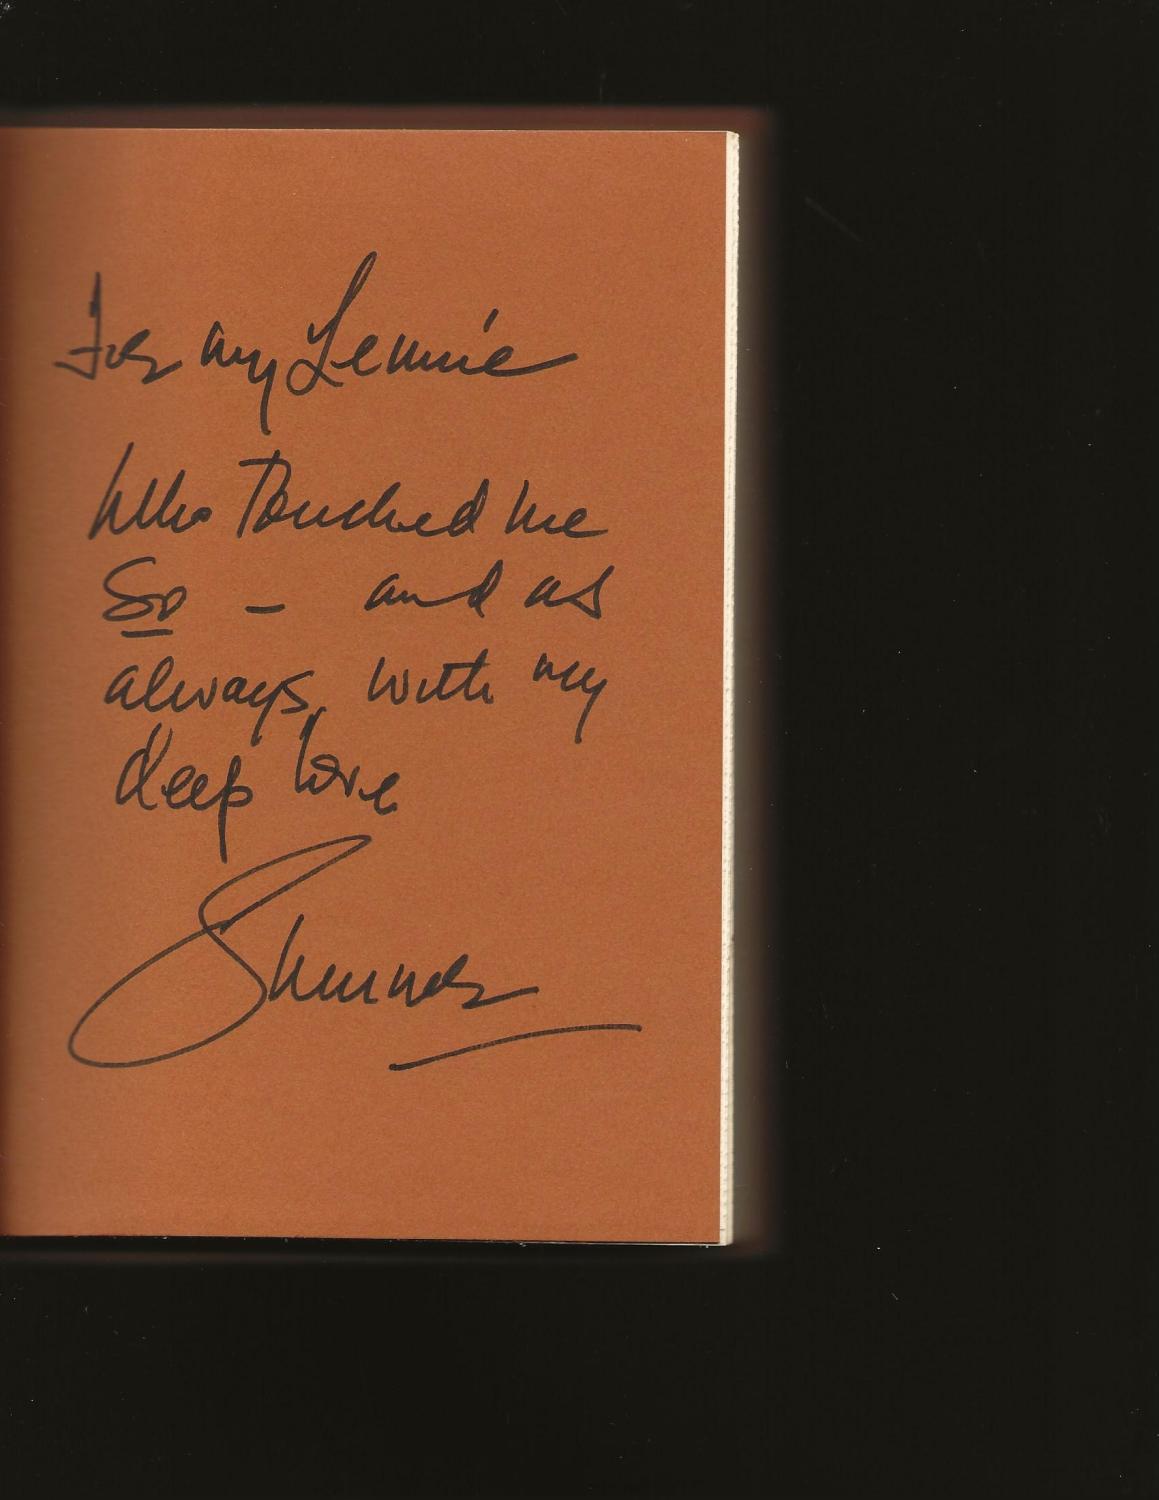 For my Lennie
Who Touched me
So - and as
always, with my
deep love